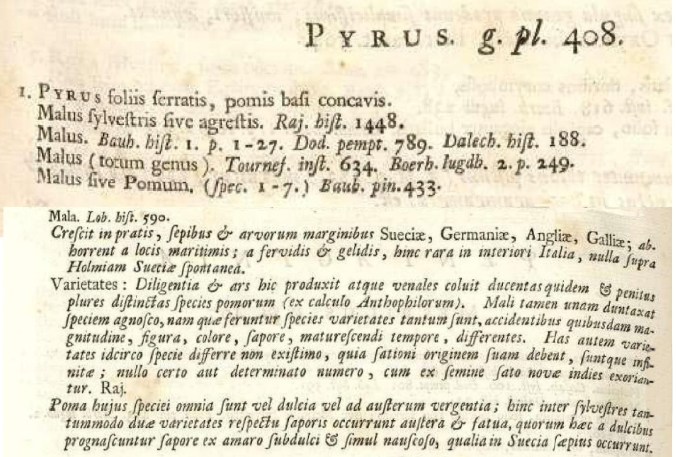 PYRUS. g. pl. 408.
1. PYRUS foliis ſerratis, pomis baſi concavis.
Malus ſylveſtris ſive agreſtis. Raj. hiſt. 1448.
Malus. Bauh. hiſt. 1. p. 1-27. Dod. pempt. 789. Dalech. hiſt. 188.
Malus (totum genus). Tournef. inſt. 634. Boerh. lugdb. 2. p. 249.
Malus ſive Pomum. (ſpec. 1-7.) Bauh. pin. 433.
Mala. Lob. hiſt. 590.
Creſcit in pratis, ſepibus & arvorum marginibus Sueciæ, Germaniæ, Angliæ, Galliæ; ab-
horrent a locis maritimis; a fervidis & gelidis, hinc rara in interiori Italia, nulla ſupra
Holmiam Sueciæ ſpontanea.
Varietates: Diligentia & ars hic produxit atque venales coluit ducentas quidem & penitus
plures diſtinctas ſpecies pomorum (ex calculo Anthophilorum). Mali tamen unam duntaxat
ſpeciem agnoſco, nam quæ feruntur ſpecies varietates tantum ſunt, accidentibus quibusdam ma-
gnitudine, figura, colore, ſapore, matureſcendi tempore, differentes. Has autem varie-
tates idcirco ſpecie differre non exiſtimo, quia ſationi originem ſuam debent, ſuntque infi-
nitæ; nullo certo aut determinato numero, cum ex ſemine ſato novæ indies exorian-
tur. Raj.
Poma hujus ſpeciei omnia ſunt vel dulcia vel ad auſterum vergentia; hinc inter ſylveſtres tan-
tummodo duæ varietates reſpectu ſaporis occurrunt auſtera & fatua, quorum hæc a dulcibus
prognaſcuntur ſapore ex amaro ſubdulci & ſimul nauſeoſo, qualia in Suecia ſæpius occurrunt.